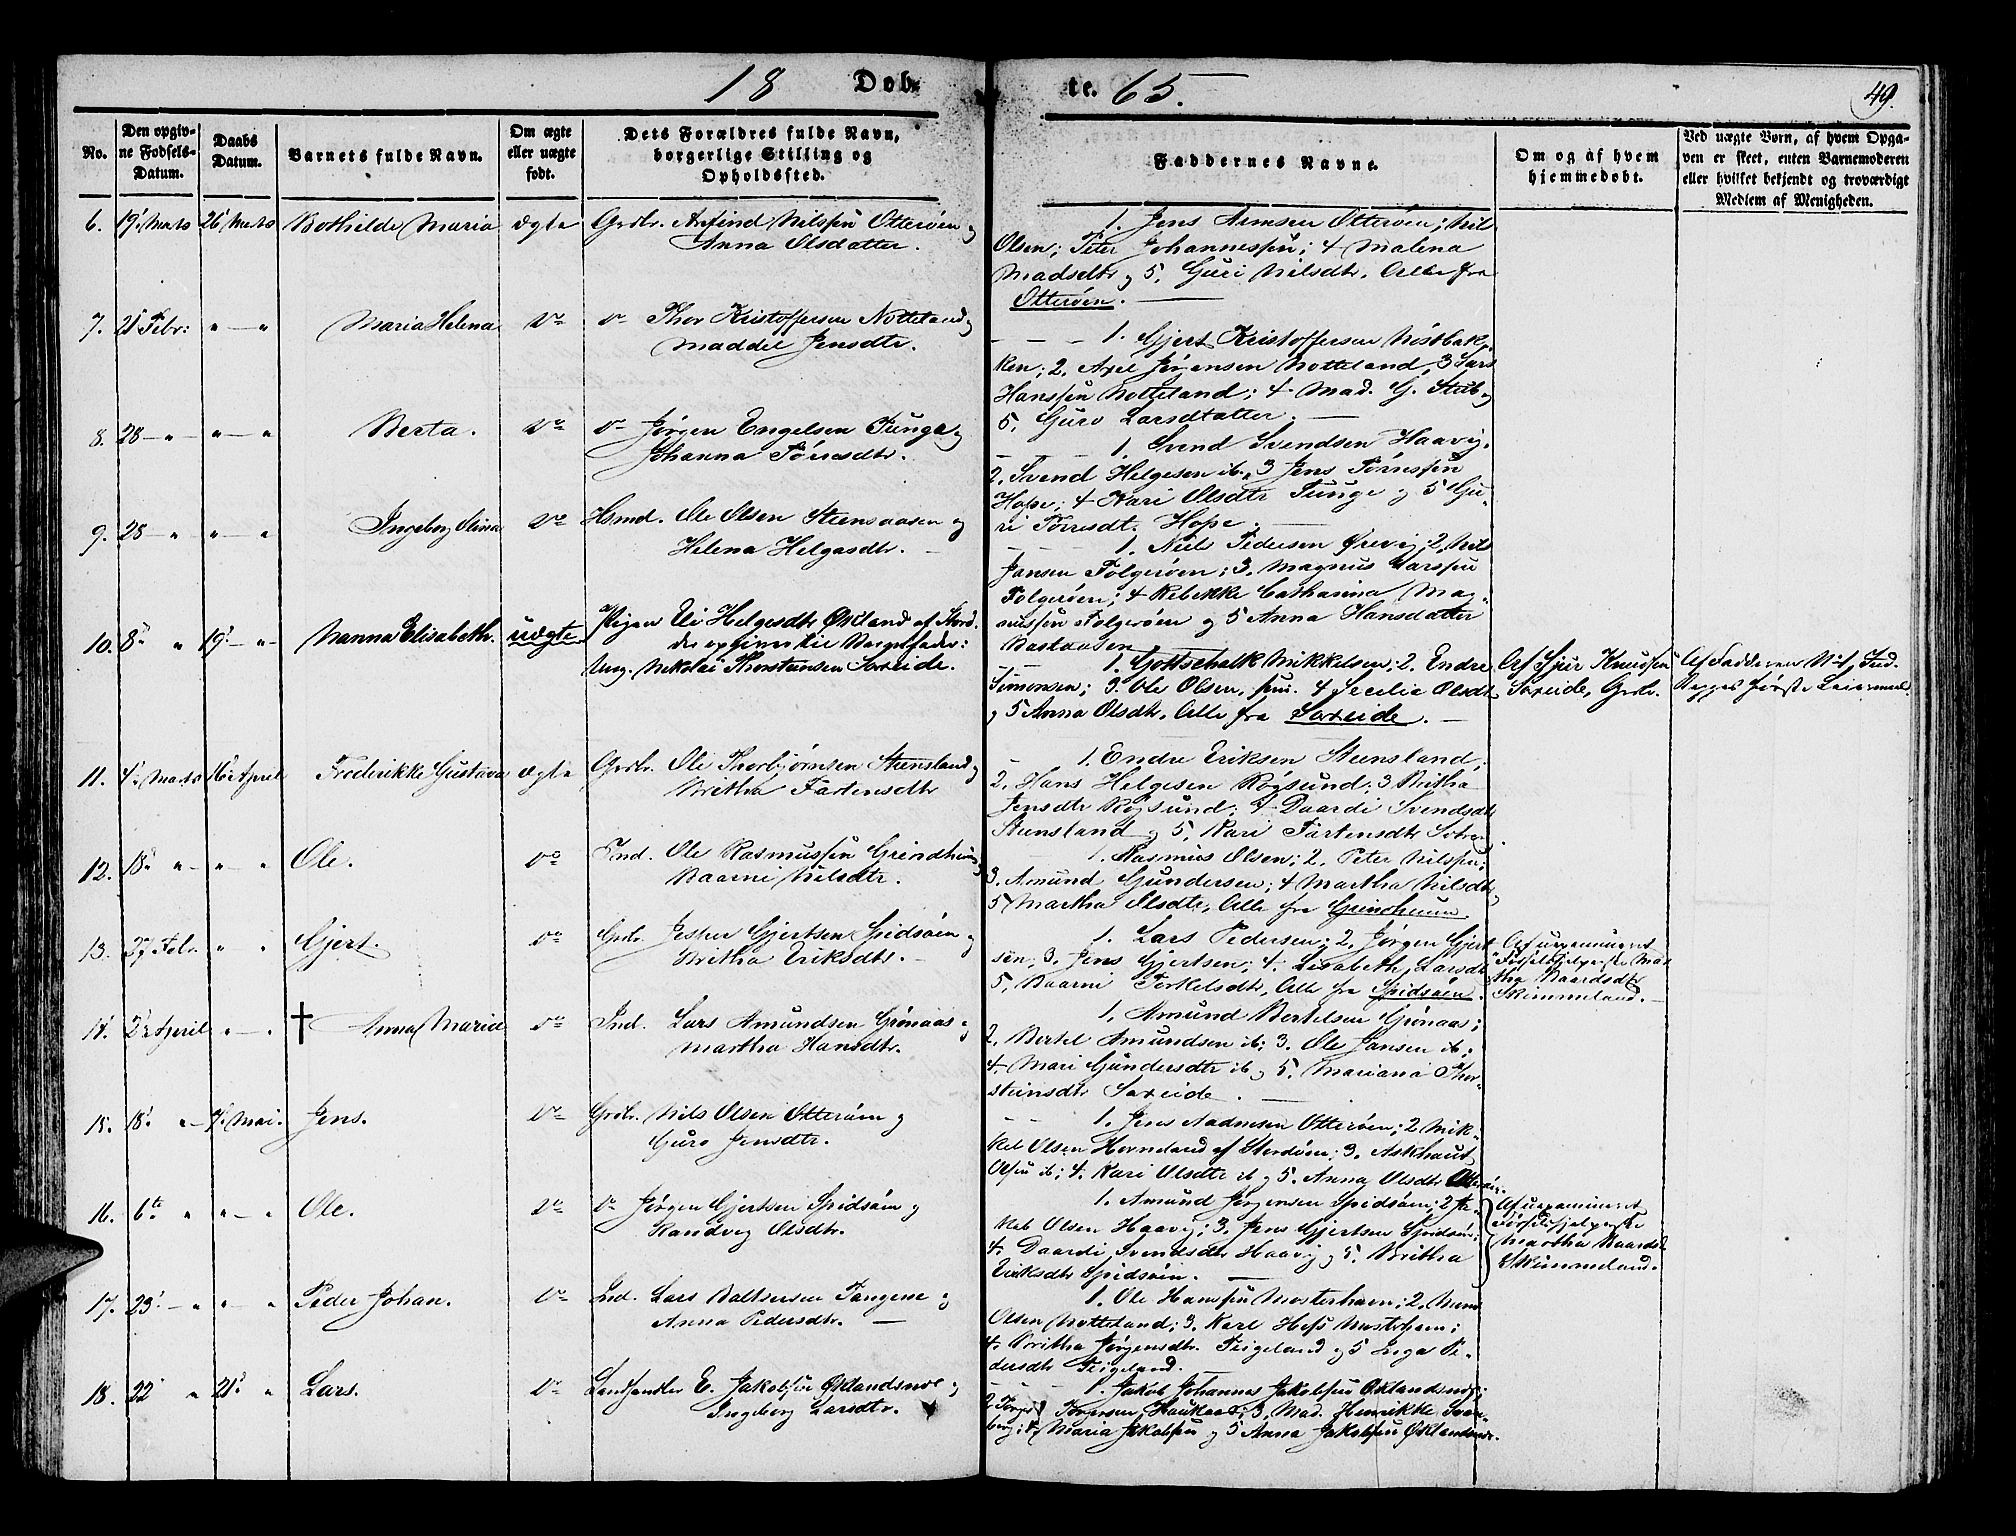 18 Døb-
te. 65.
49.
No.
Den opgiv-
ne Fødsels-
Datum.
Daabs
Datum.
Barnets fulde Navn.
Om ægte
eller uægte
født.
Dets Forældres fulde Navn,
borgerlige Stilling og
Opholdssted.
Faddernes Navne.
Om og af hvem
hjemmedøbt.
Ved uægte Børn, af hvem Opga-
ven er skeet, enten Barnemoderen
eller hvilket bekjendt og troværdigt
Medlem af Menigheden.
6. 19' Marts 26' Marts Bothilde Maria ægte Grdbr. Anfind Nilssen Otterøen og
Anna Olsdatter.
1. Jens Otterøen; Nils
Olsen; Peter Johannessen; 4 Malena
Madsdtr og 5. Guri Nilsdtr. Alle fra
Otterøen.
7. 21' Febr: " — " Maria Helena Do Do Thor Kristoffersen Notteland og
Maddel Jensdtr.
1. Gjert Kristoffersen Nistbak-
ken; 2. Axel Jørgensen Notteland, 3 Lars
Hanssen Notteland; 4 Mad. G. og
5. Guro Larsdtatter.
8. 28 — " " — " Berta. Do Do Jørgen Engelsen Tunge og
Johanna Tørresdtr.
1. Svend Svendsen Haavig.
2. Svend Helgesen ib., 3 Jens Tørressen
Hope; 4 Kari Olsdtr Tunge og 5 Gu-
ri Tørresdt. Hope.
9. 28 — " " — " Ingeborg Do Hsmd. Ole Olsen Steensaasen og
Helena Helgasdtr.
1. Nils Pedersen 2. Nils
Jansen Folgerøen; 3. Magnus Larssen
Folgerøen; 4 Rebekke Cathinna Mag-
nussen Folgerøen og 5 Anna Hansdatter
10. 8' " 19' — " Nanna Elisabeth. uægte Pigen Eli Helgesdtr Økland af Stord.
der opgiver til Barnefader:
Ung. Nikolai Thorstensen Sæxeide.
1. Gottschalk Mikkelsen; 2. Endre
Simonsen; 3. Ole Olsen, sen. 4 Secilie Olsdtr
og 5 Anna Olsdtr. Alle fra Sæxeide.
Af Sjur Knudsen
Sæxeide, Grdbr.
Af Fadderen No 1,
Begges første Leiermaal.
11. 4' Marts 16' April Frederikke Gustava ægte Grdbr. Ole Thorbjørnsen Steensland og
Britha Tartensdtr
1. Endre Eriksen Steensland;
2. Hans Helgesen Røgsund; 3 Britha
Jensdtr Røgsund; 4 Daardi Svendsdtr
Steensland og 5. Kari Tartensdtr
12. 18' " — " — " Ole. Do Ind. Ole Rasmussen Grindheim og
Baarni Nilsdtr.
1. Rasmus Olsen; 2. Peter Nilssen;
3. Amund Gundersen; 4 Martha Nilsdtr,
5 Martha Olsdtr. Alle fra Grindheim.
13. 27 Febr. " " Gjert. Do Grdbr. Jesper Gjertsen Spidsøen og
Britha Eriksdtr.
1. Lars Pedersen; 2. Jørgen Gjert-
sen; 3. Jens Gjertsen; 4. Lisabeth Larsdtr
5. Baarni Torkelsdtr. Alle fra Spidsøen.
Af uexamineret
Fødselshjelperske Mar-
tha Baardsdtr
Skimmeland.
14. 2' April " — " † Anna Maria Do Ind. Lars Amundsen Grønaas og
Martha Hansdtr.
1. Amund Bertelsen Grønaas;
2. Bertel Amundsen ib; 3. Ole Jansen ib;
4. Mari Gundersdtr ib og 5. Mariana Thor-
steinsdtr Sæxeide.
15. 18' " — 7' Mai. Jens. Do Grdbr. Nils Olsen Otterøen og
Guro Jensdtr.
1. Jens Otterøen; 2 Mik-
kel Olsen Hovneland af Stordøen; 3. Askhaut
Olsen ib; 4. Kari Olsdtr ib og 5. Anna Olsdtr
16. 6te " " — " Ole. Do Do Jørgen Gjertsen Spidsøen og
Randvig Olsdtr.
1. Amund Jørgensen Spidsøen;
Olsen Haavig; 3. Jens Gjertsen Spidsøen;
4. Daardi Svendsdtr Haavig og 5. Britha
Eriksdtr Spidsøen.
Af uexamineret
Fødselshjelperske
Martha Baardsdt.
Skimmeland.
17. 23' — " " — " Peder Johan. Do Ind. Lars Baltsersen Tangene og
Anna Pedersdtr.
1. Ole Hanssen Mosterhavn; 2.
Olsen Notteland; 3. Karl Hess Mosterhavn;
4. Britha Jørgensdtr. Teigeland og 5 Pe-
dersdtr Teigeland.
18. 22' " 21' " Lars. Do Landhandler E. Jakobsen Øklandsnæs og
Ingeborg Larsdtr.
1. Jakob Johannes Jakobsen Øklandsnæs;
2 Jørgensen 3. Mad. Henrikke Svan-
berg; 4. Maria Jakobsen og 5 Anna Jakobsen Øklandsnæs.